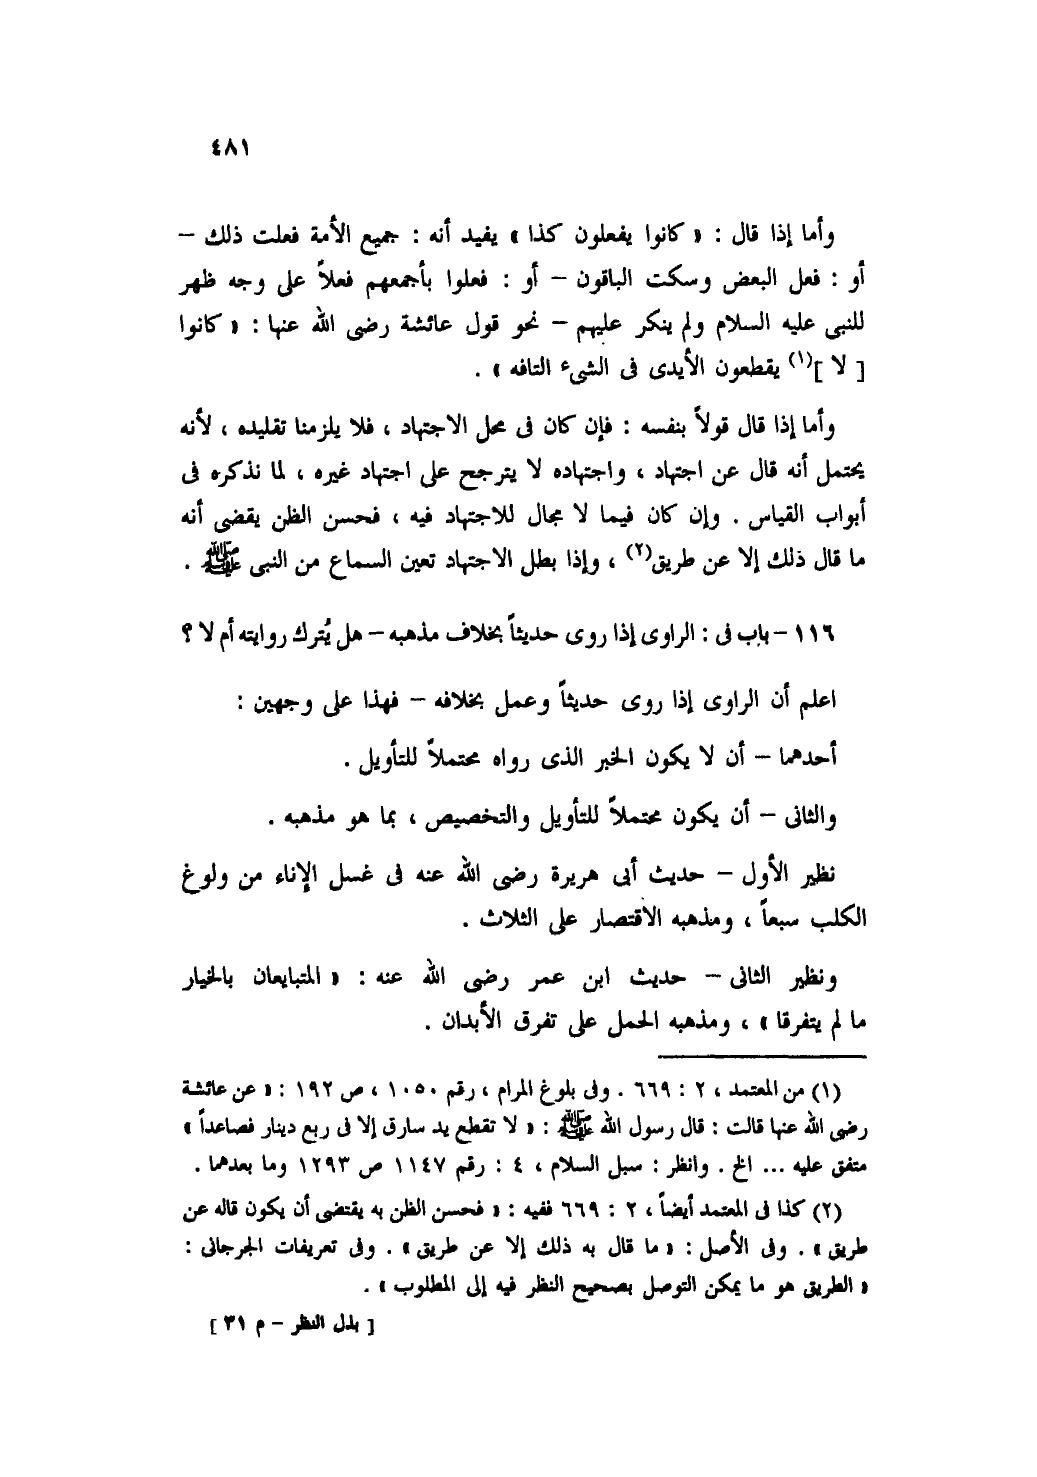 ٤٨١
وأما إذا قال : « كانوا يفعلون كذا » يفيد أنه : جميع الأمة فعلت ذلك –
أو : فعل البعض وسكت الباقون – أو : فعلوا بأجمعهم فعلاً على وجه ظهر
للنبى عليه السلام ولم ينكر عليهم – نحو قول عائشة رضى الله عنها : « كانوا
[ لا ](١) يقطعون الأيدى فى الشىء التافه » .
وأما إذا قال قولاً بنفسه : فإن كان فى محل الاجتهاد ، فلا يلزمنا تقليده ، لأنه
يحتمل أنه قال عن اجتهاد ، واجتهاده لا يترجح على اجتهاد غيره ، لما نذكره فى
أبواب القياس . وإن كان فيما لا مجال للاجتهاد فيه ، فحسن الظن يقضى أنه
ما قال ذلك إلا عن طريق(٢) ، وإذا بطل الاجتهاد تعين السماع من النبى ﷺ .
١١٦ – باب فى : الراوى إذا روى حديثاً بخلاف مذهبه – هل يُترك روايته أم لا ؟
اعلم أن الراوى إذا روى حديثاً وعمل بخلافه – فهذا على وجهين :
أحدهما – أن لا يكون الخبر الذى رواه محتملاً للتأويل .
والثانى – أن يكون محتملاً للتأويل والتخصيص ، بما هو مذهبه .
نظير الأول – حديث أبى هريرة رضى الله عنه فى غسل الإناء من ولوغ
الكلب سبعاً ، ومذهبه الاقتصار على الثلاث .
ونظير الثانى – حديث ابن عمر رضى الله عنه : « المتبايعان بالخيار
ما لم يتفرقا » ، ومذهبه الحمل على تفرق الأبدان .
(١) من المعتمد ، ٢ : ٦٦٩ . وفى بلوغ المرام ، رقم ١٠٥٠ ، ص ١٩٢ : « عن عائشة
رضى الله عنها قالت : قال رسول الله ﷺ : « لا تقطع يد سارق إلا فى ربع دينار فصاعداً »
متفق عليه ... الخ . وانظر : سبل السلام ، ٤ : رقم ١١٤٧ ص ١٢٩٣ وما بعدهما .
(٢) كذا فى المعتمد أيضاً ، ٢ : ٦٦٩ ففيه : « فحسن الظن به يقتضى أن يكون قاله عن
طريق » . وفى الأصل : « ما قال به ذلك إلا عن طريق » . وفى تعريفات الجرجانى :
« الطريق هو ما يمكن التوصل بصحيح النظر فيه إلى المطلوب » .
[ بذل النظر – م ٣١ ]